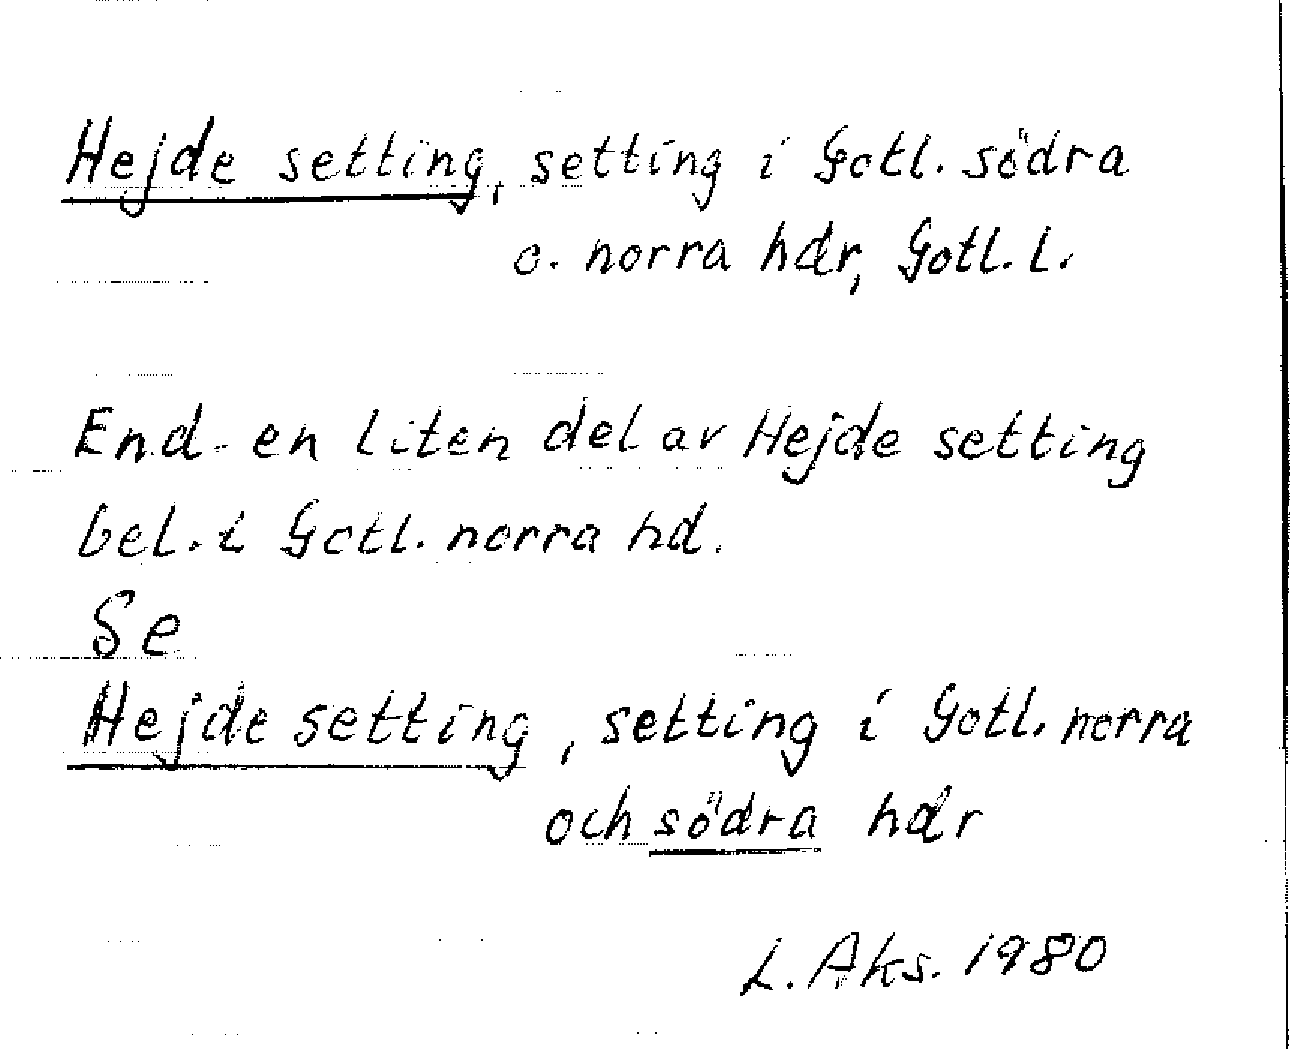 Hejde setting, setting i Gotl. södra
o. norra hdr, Gotl. l.
End. en liten del av Hejde setting
bel. i Gotl. norra hd.
Se
Hejde setting, setting i Gotl. norra
och södra hdr
L. Aks. 1980